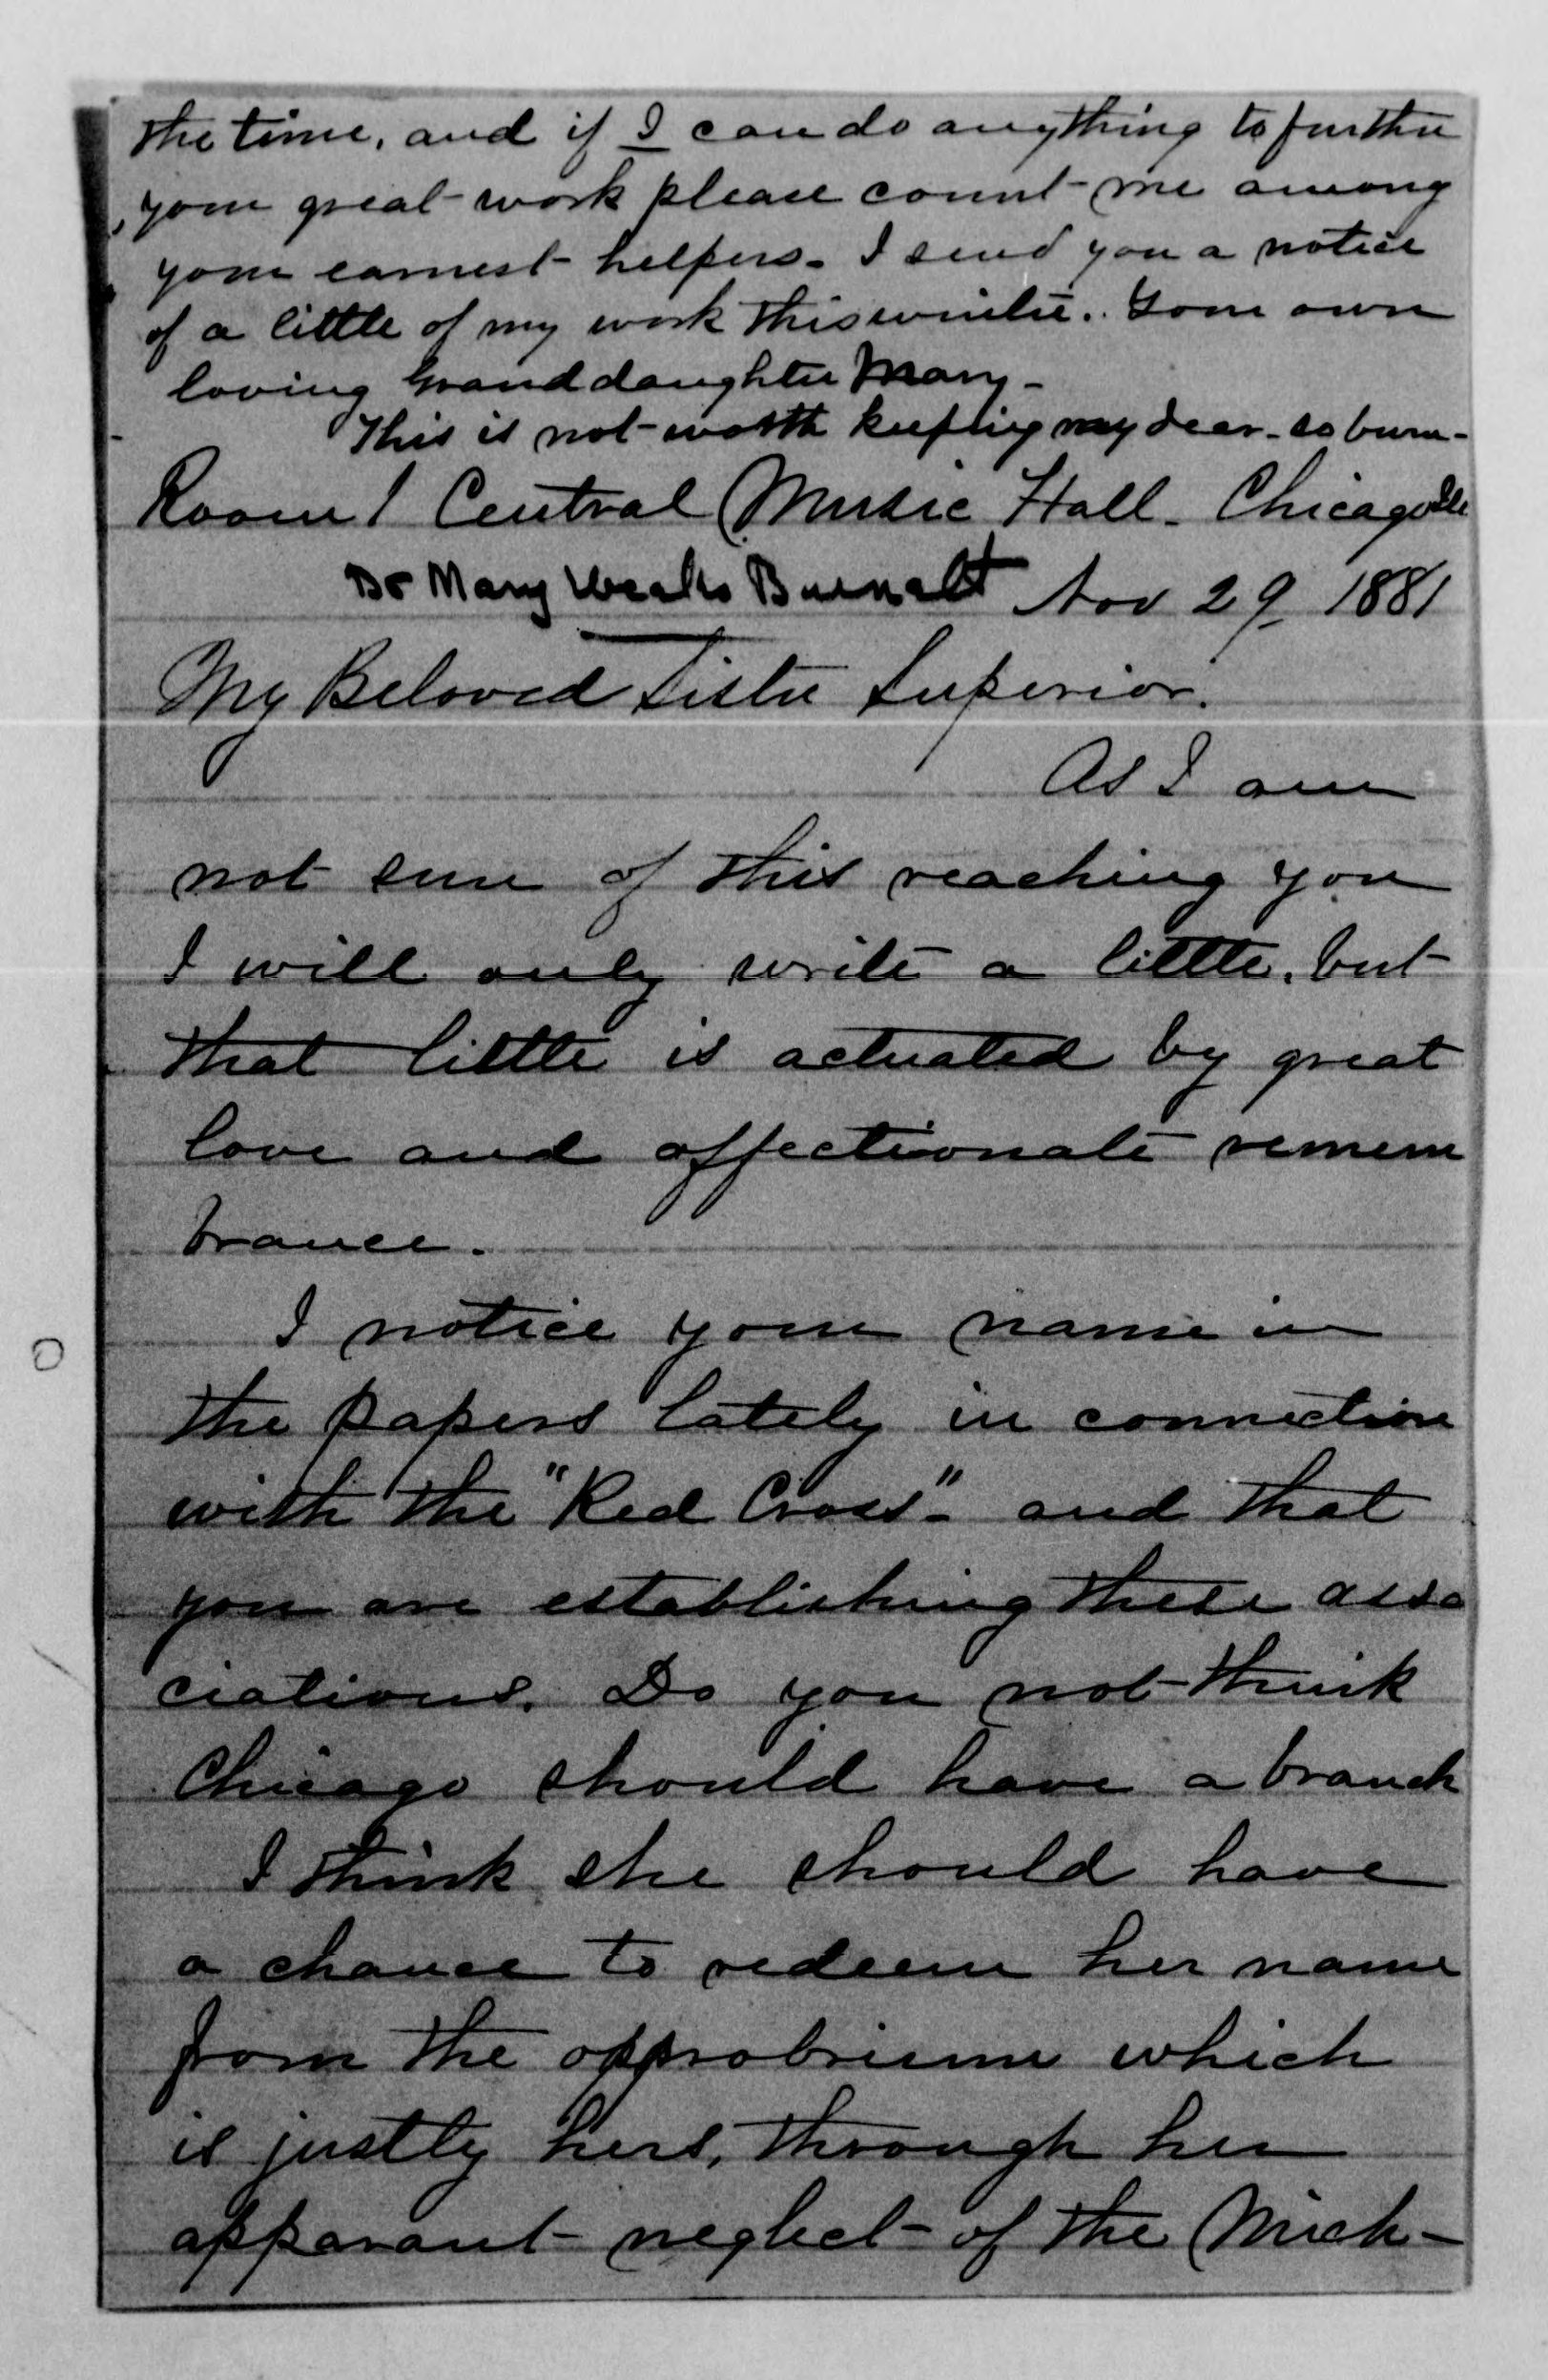 the time, and if I can do anything to further
your great work please count me among
your earnest helpers - I send you a notice
of a little of my work this winter. Your own
loving Granddaughter Mary -
This is not worth keeping my dear - so burn -
Room 1 Central Music Hall - Chicago Ills
Dr Mary Weeks Burnett Nov 29 1881
My Beloved Sister Superior.
As I am
not sure of this reaching you
I will only write a little, but
that little is actuated by great
love and affectionate remem
brance.
I notice your name in
the papers lately in connection
with the "Red Cross" - and that
you are establishing these asso
ciations. Do you not think
Chicago should have a branch
I think she should have
a chance to redeem her name
from the opprobrium which
is justly hers, through her
apparant neglect of the Mich -